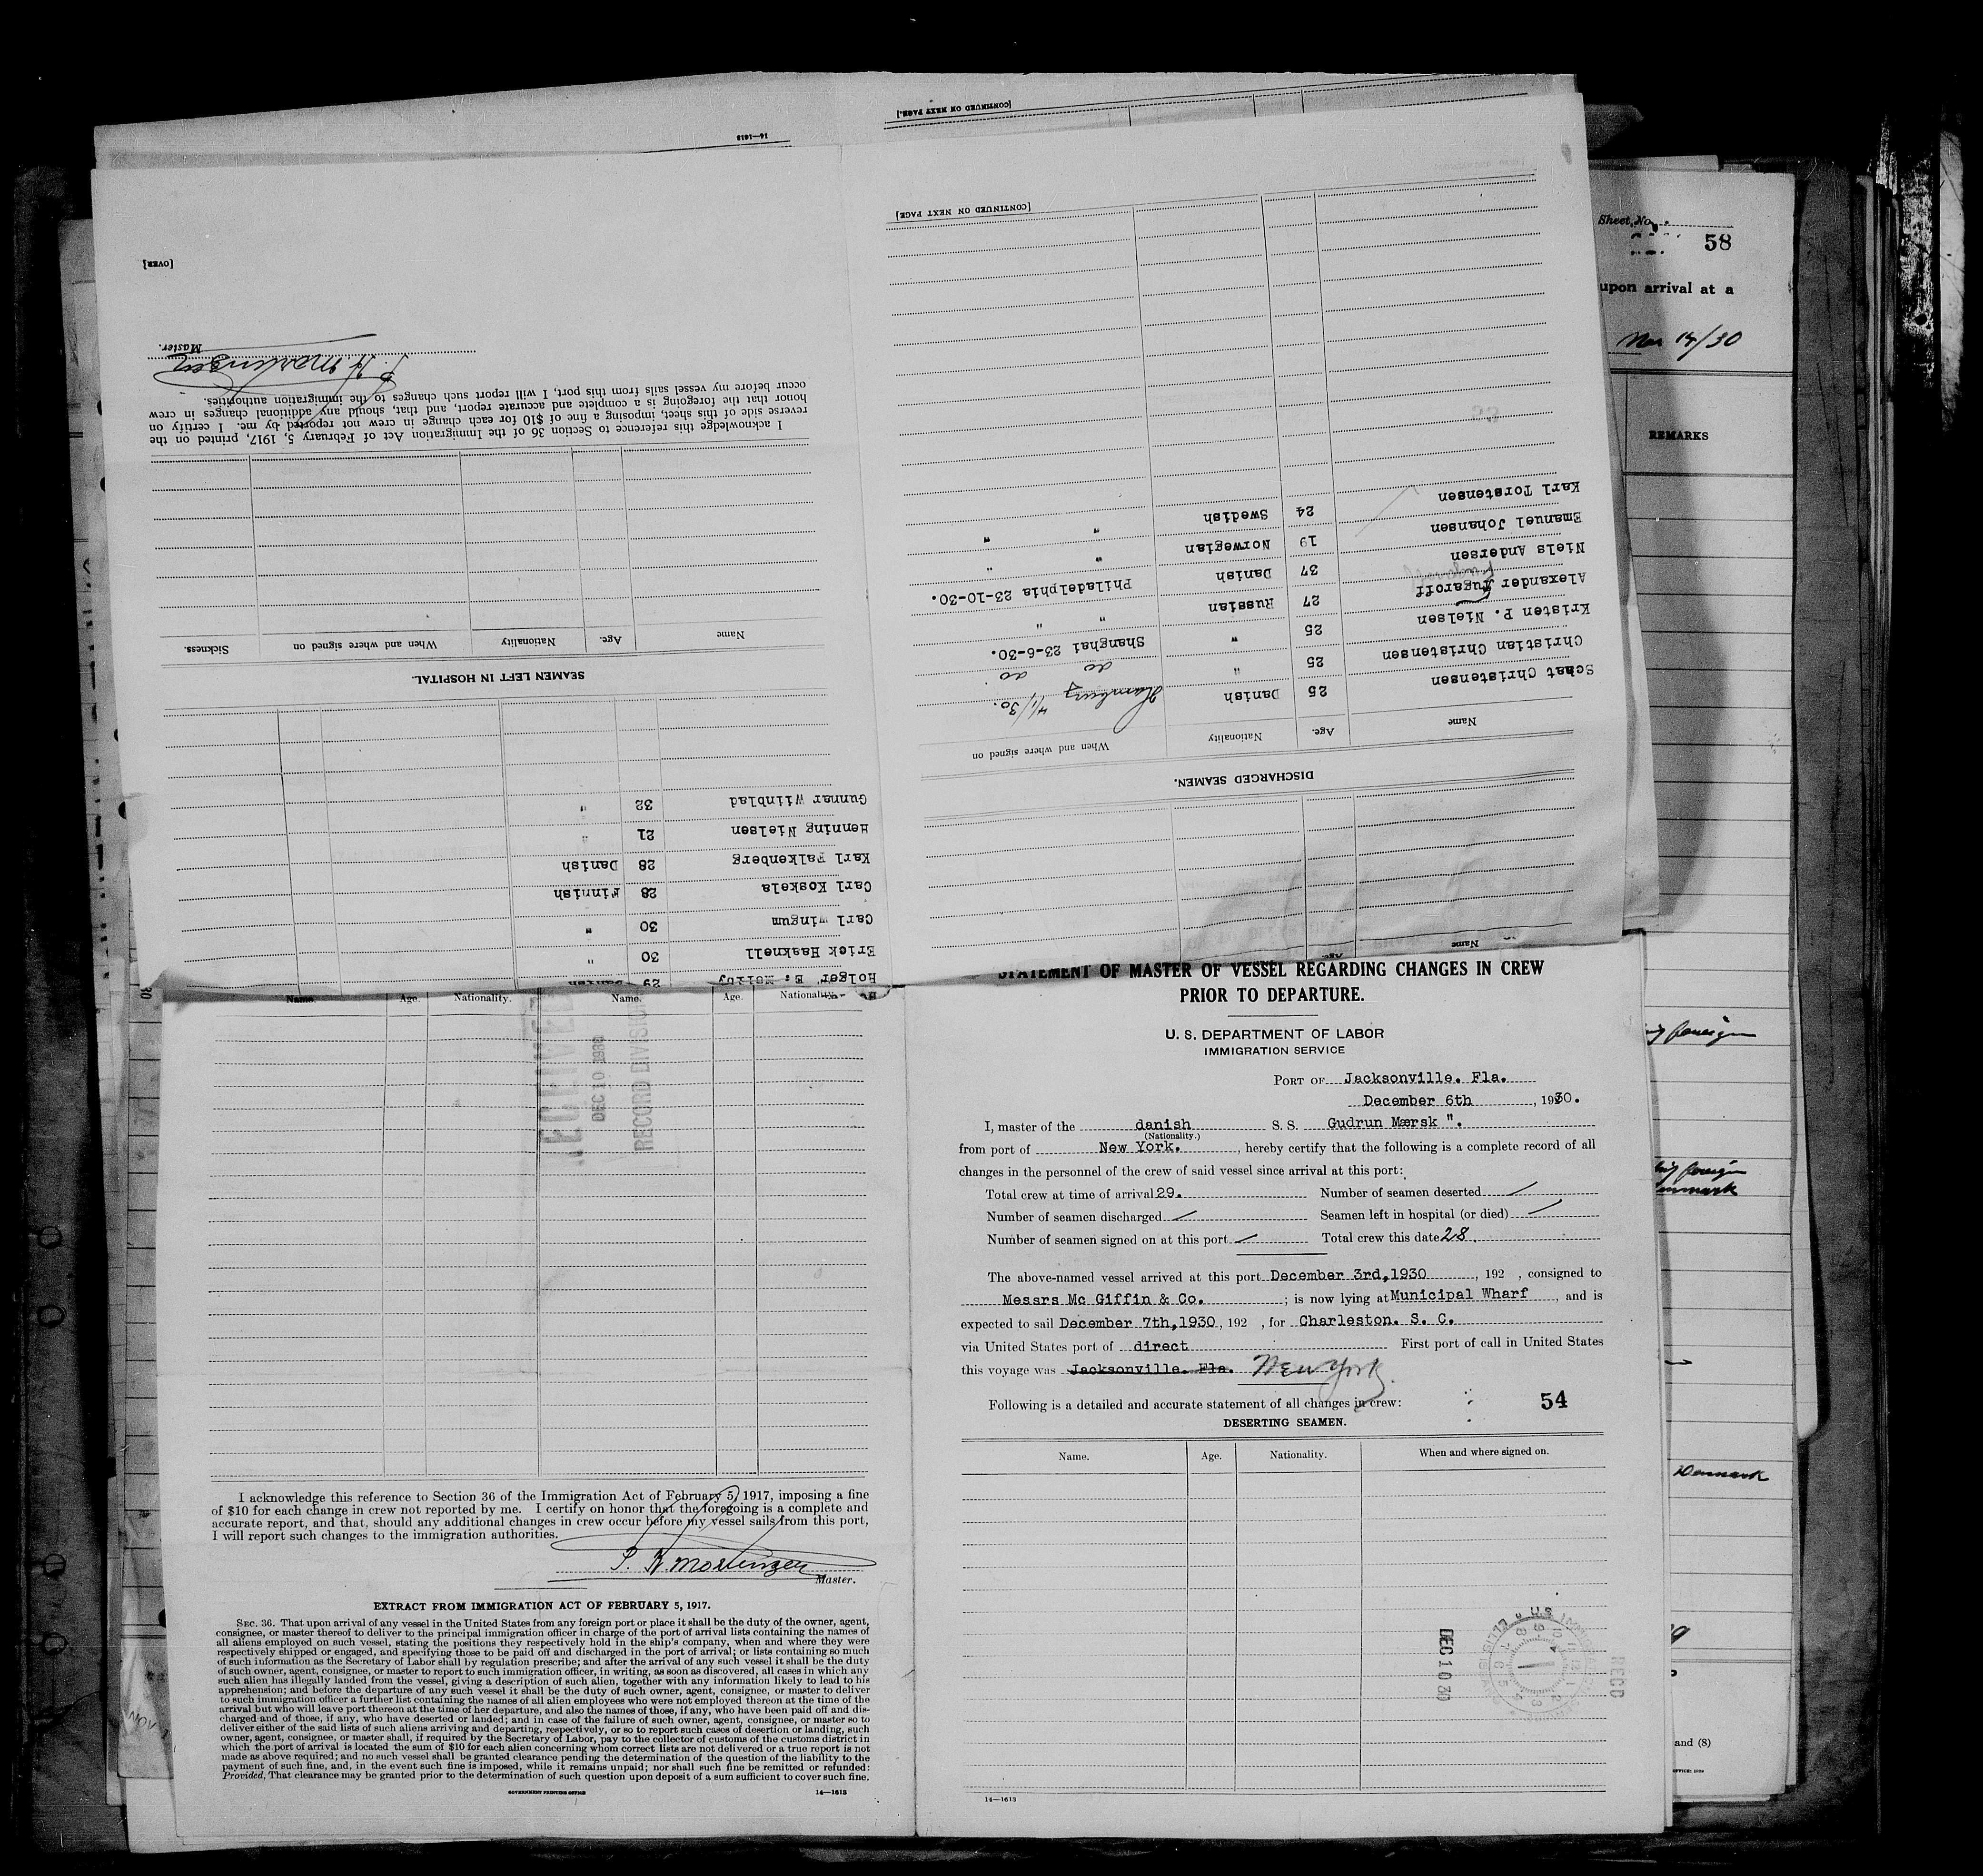 14—1613
[CONTINUED ON NEXT PAGE.]
[OVER]
Master.
P. K. Mortensen
I acknowledge this reference to Section 36 of the Immigration Act of February 5, 1917, printed on the
reverse side of this sheet, imposing a fine of $10 for each change in crew not reported by me. I certify on
honor that the foregoing is a complete and accurate report, and that, should any additional changes in crew
occur before my vessel sails from this port, I will report such changes to the immigration authorities.
SEAMEN LEFT IN HOSPITAL.
Name Age. Nationality When and where signed on Sickness.
Holger E. 29 Danish
Erick Haaknell 30 "
Carl Wingum 30 "
Carl Koskela 28 Finnish
Karl Falkenberg 28 Danish
Henning Nielsen 21 "
Gunnar Wiinblad 32 "
Name Age.
DISCHARGED SEAMEN.
Name Age. Nationality When and where signed on
Schat Christensen 25 Danish Hamburg 4/1/30.
Christian Christensen 25 " do do
Kristen P. Nielsen 25 " Shanghai 23-6-30.
Alexander Fugaroff 27 Russian " "
Niels Andersen 37 Danish Philadelphia 23-10-30.
Emanuel Johansen 19 Norwegian " "
Karl Torstensen 24 Swedish " "
[CONTINUED ON NEXT PAGE]
Sheet No.
58
upon arrival at a
Nov 14/30
REMARKS
foreign
foreign
Denmark
and (8)
Name. Age. Nationality. Name. Age. Nationality.
DEC 10 1930
RECORD DIVISION
I acknowledge this reference to Section 36 of the Immigration Act of February 5, 1917, imposing a fine
of $10 for each change in crew not reported by me. I certify on honor that the foregoing is a complete and
accurate report, and that, should any additional changes in crew occur before my vessel sails from this port,
I will report such changes to the immigration authorities.
P. K. Mortensen
Master.
EXTRACT FROM IMMIGRATION ACT OF FEBRUARY 5, 1917.
SEC. 36. That upon arrival of any vessel in the United States from any foreign port or place it shall be the duty of the owner, agent,
consignee, or master thereof to deliver to the principal immigration officer in charge of the port of arrival lists containing the names of
all aliens employed on such vessel, stating the positions they respectively hold in the ship's company, when and where they were
respectively shipped or engaged, and specifying those to be paid off and discharged in the port of arrival; or lists containing so much
of such information as the Secretary of Labor shall by regulation prescribe; and after the arrival of any such vessel it shall be the duty
of such owner, agent, consignee, or master to report to such immigration officer, in writing, as soon as discovered, all cases in which any
such alien has illegally landed from the vessel, giving a description of such alien, together with any information likely to lead to his
apprehension; and before the departure of any such vessel it shall be the duty of such owner, agent, consignee, or master to deliver
to such immigration officer a further list containing the names of all alien employees who were not employed thereon at the time of the
arrival but who will leave port thereon at the time of her departure, and also the names of those, if any, who have been paid off and dis-
charged and of those, if any, who have deserted or landed; and in case of the failure of such owner, agent, consignee, or master so to
deliver either of the said lists of such aliens arriving and departing, respectively, or so to report such cases of desertion or landing, such
owner, agent, consignee, or master shall, if required by the Secretary of Labor, pay to the collector of customs of the customs district in
which the port of arrival is located the sum of $10 for each alien concerning whom correct lists are not delivered or a true report is not
made as above required; and no such vessel shall be granted clearance pending the determination of the question of the liability to the
payment of such fine, and, in the event such fine is imposed, while it remains unpaid; nor shall such fine be remitted or refunded:
Provided, That clearance may be granted prior to the determination of such question upon deposit of a sum sufficient to cover such fine.
GOVERNMENT PRINTING OFFICE 14—1613
STATEMENT OF MASTER OF VESSEL REGARDING CHANGES IN CREW
PRIOR TO DEPARTURE.
U. S. DEPARTMENT OF LABOR
IMMIGRATION SERVICE
PORT OF Jacksonville. Fla.
December 6th, 1930.
I, master of the danish S. S. Gudrun Mærsk ".
(Nationality.)
from port of New York., hereby certify that the following is a complete record of all
changes in the personnel of the crew of said vessel since arrival at this port:
Total crew at time of arrival 29. Number of seamen deserted /
Number of seamen discharged / Seamen left in hospital (or died) /
Number of seamen signed on at this port / Total crew this date 28.
The above-named vessel arrived at this port December 3rd,1930, 192 , consigned to
Messrs Mc Giffin & Co. ; is now lying at Municipal Wharf, and is
expected to sail December 7th,1930, 192 , for Charleston. S. C.
via United States port of direct First port of call in United States
this voyage was Jacksonville. Fla. New York.
Following is a detailed and accurate statement of all changes in crew:
54
DESERTING SEAMEN.
Name. Age. Nationality. When and where signed on.
DEC 10 30
REC'D
14—1613